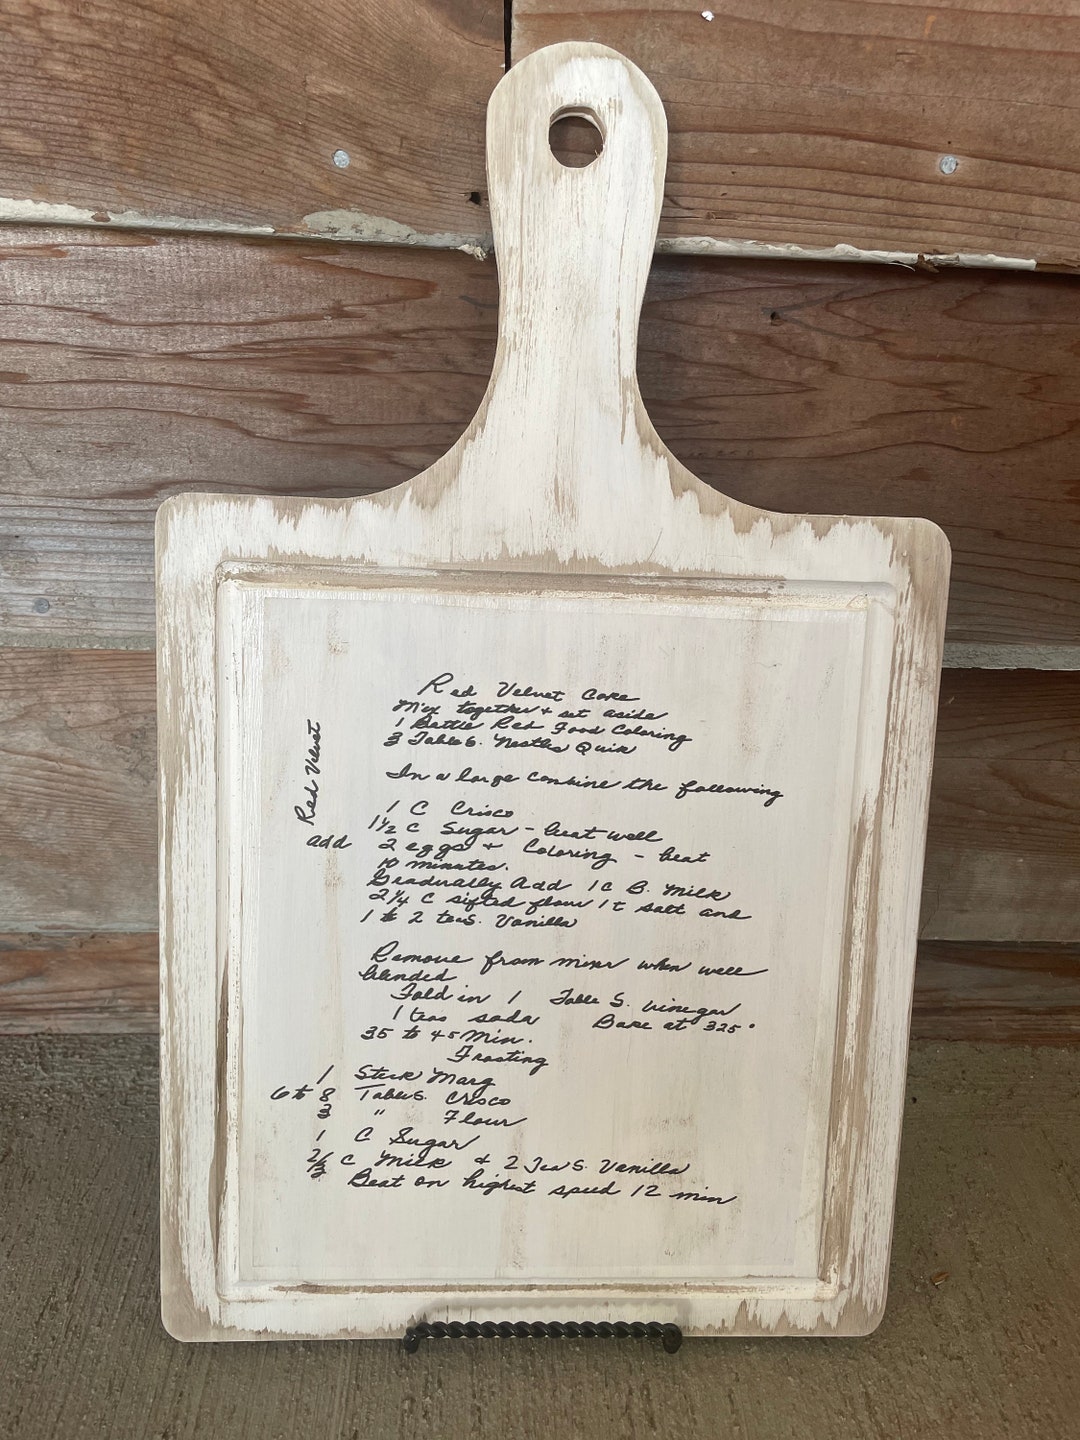 Red Velvet Cake
Mix together + set aside
1 Bottle Red Food Coloring
3 Tables. Nestles Quik
In a large combine the following
Red Velvet
1 C Crisco
1 1/2 C Sugar - beat well
add 2 eggs + Coloring - beat
10 minutes.
Gradually Add 1 C B. Milk
2 1/4 C sifted flour 1 t salt and
1 to 2 teas. Vanilla
Remove from mixer when well
blended
Fold in 1 Table S. vinegar
1 teas soda Bake at 325°
35 to 45 Min.
Frosting
1 Stick Marg
6 to 8 Tables. Crisco
3 " Flour
1 C Sugar
2/3 C Milk & 2 Teas. Vanilla
Beat on highest speed 12 min